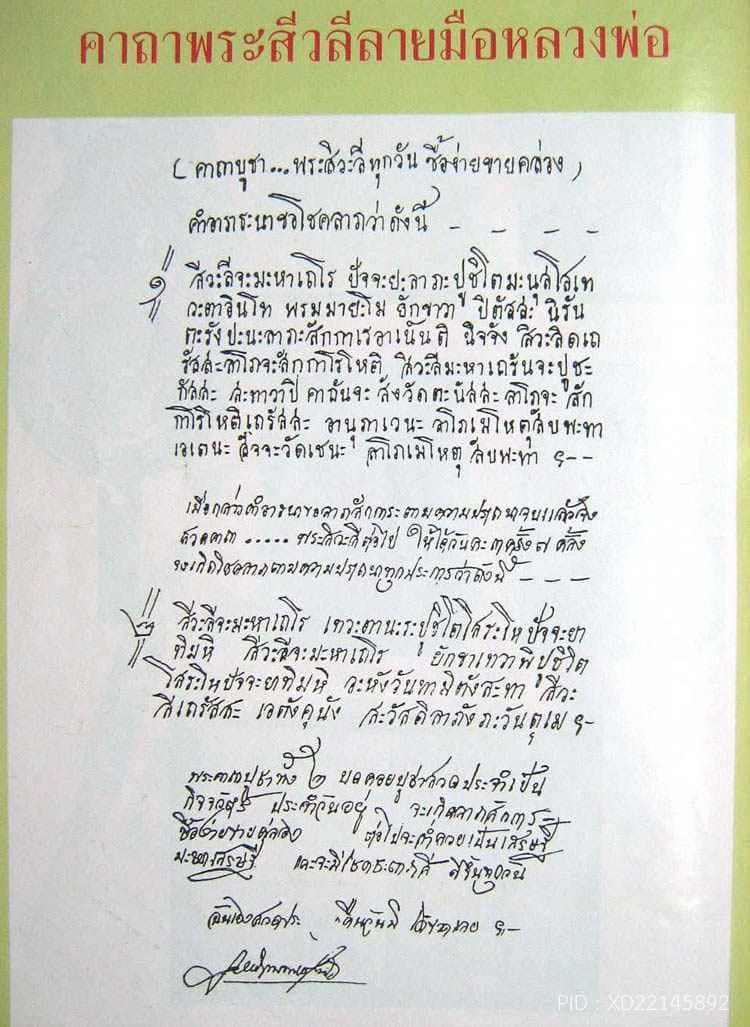 คาถาพระสีวลีลายมือหลวงพ่อ
(คาถาบูชา...พระสิวะลีทุกวัน ซื้อง่ายขายคล่อง)
คำอาราธะนาขอโชคลาภว่าดังนี้ - - - -
๑ สีวะลีจะมะหาเถโร ปัจจะยะลาภะปูชิโตมะนุสโสเท
วะตาอินโท พรมมายะโม ยักขาวา ปิตัสสะ นิรัน
ตะรังปะนะลาภะสักกาเรอาเนันติ นิจจัง สิวะลิดเถ
รัสสะลาโภจะสักกาโรโหติ สิวะลีมะหาเถรันจะปูชะ
กัสสะ สะทาวาปิ คาถันจะ สังวัดตะนัสสะ ลาโภจะ สัก
กาโรโหติเถรัสสะ อานุภาเวนะ ลาโภเมโหตุสับพะทา
เอเตนะ สัจจะวัดเชนะ ลาโภเมโหตุ สับพะทา ฯ--
เมื่อกล่าวคำอาราธนาขอลาภสักการะตามความปรารถนาจบแล้วจึง
สวดคาถา ..... พระสิวะลีต่อไป ให้ได้วันละ ๓ ครั้ง ๗ ครั้ง
จะเกิดโชคลาภตามความปรารถนาทุกประการว่าดังนี้ - - -
๒ สีวะลีจะมะหาเถโร เทวะตานะระปูชิโตโสระโหปัจจะยา
ทิมหิ สีวะลีจะมะหาเถโร ยักขาเทวาพิปูชิโต
โสระโหปัจจะยาทิมหิ อะหังวันทามิตังสะทา สีวะ
ลีเถรัสสะ เอตังคุนัง สะวัสดิลาภังภะวันตุเม ฯ-
พระคาถาบูชาทั้ง ๒ บทคอยบูชาสวดประจำเป็น
กิจวัตร์ ประจำวันอยู่ จะเกิดลาภสักการะ
ซื้อง่ายขายคล่อง ต่อไปจะร่ำรวยเป็นเศรษฐี
มะหาเศรษฐี และจะมีโชคชะตาดี ดีขึ้นทุกวัน
PID : XD22145892